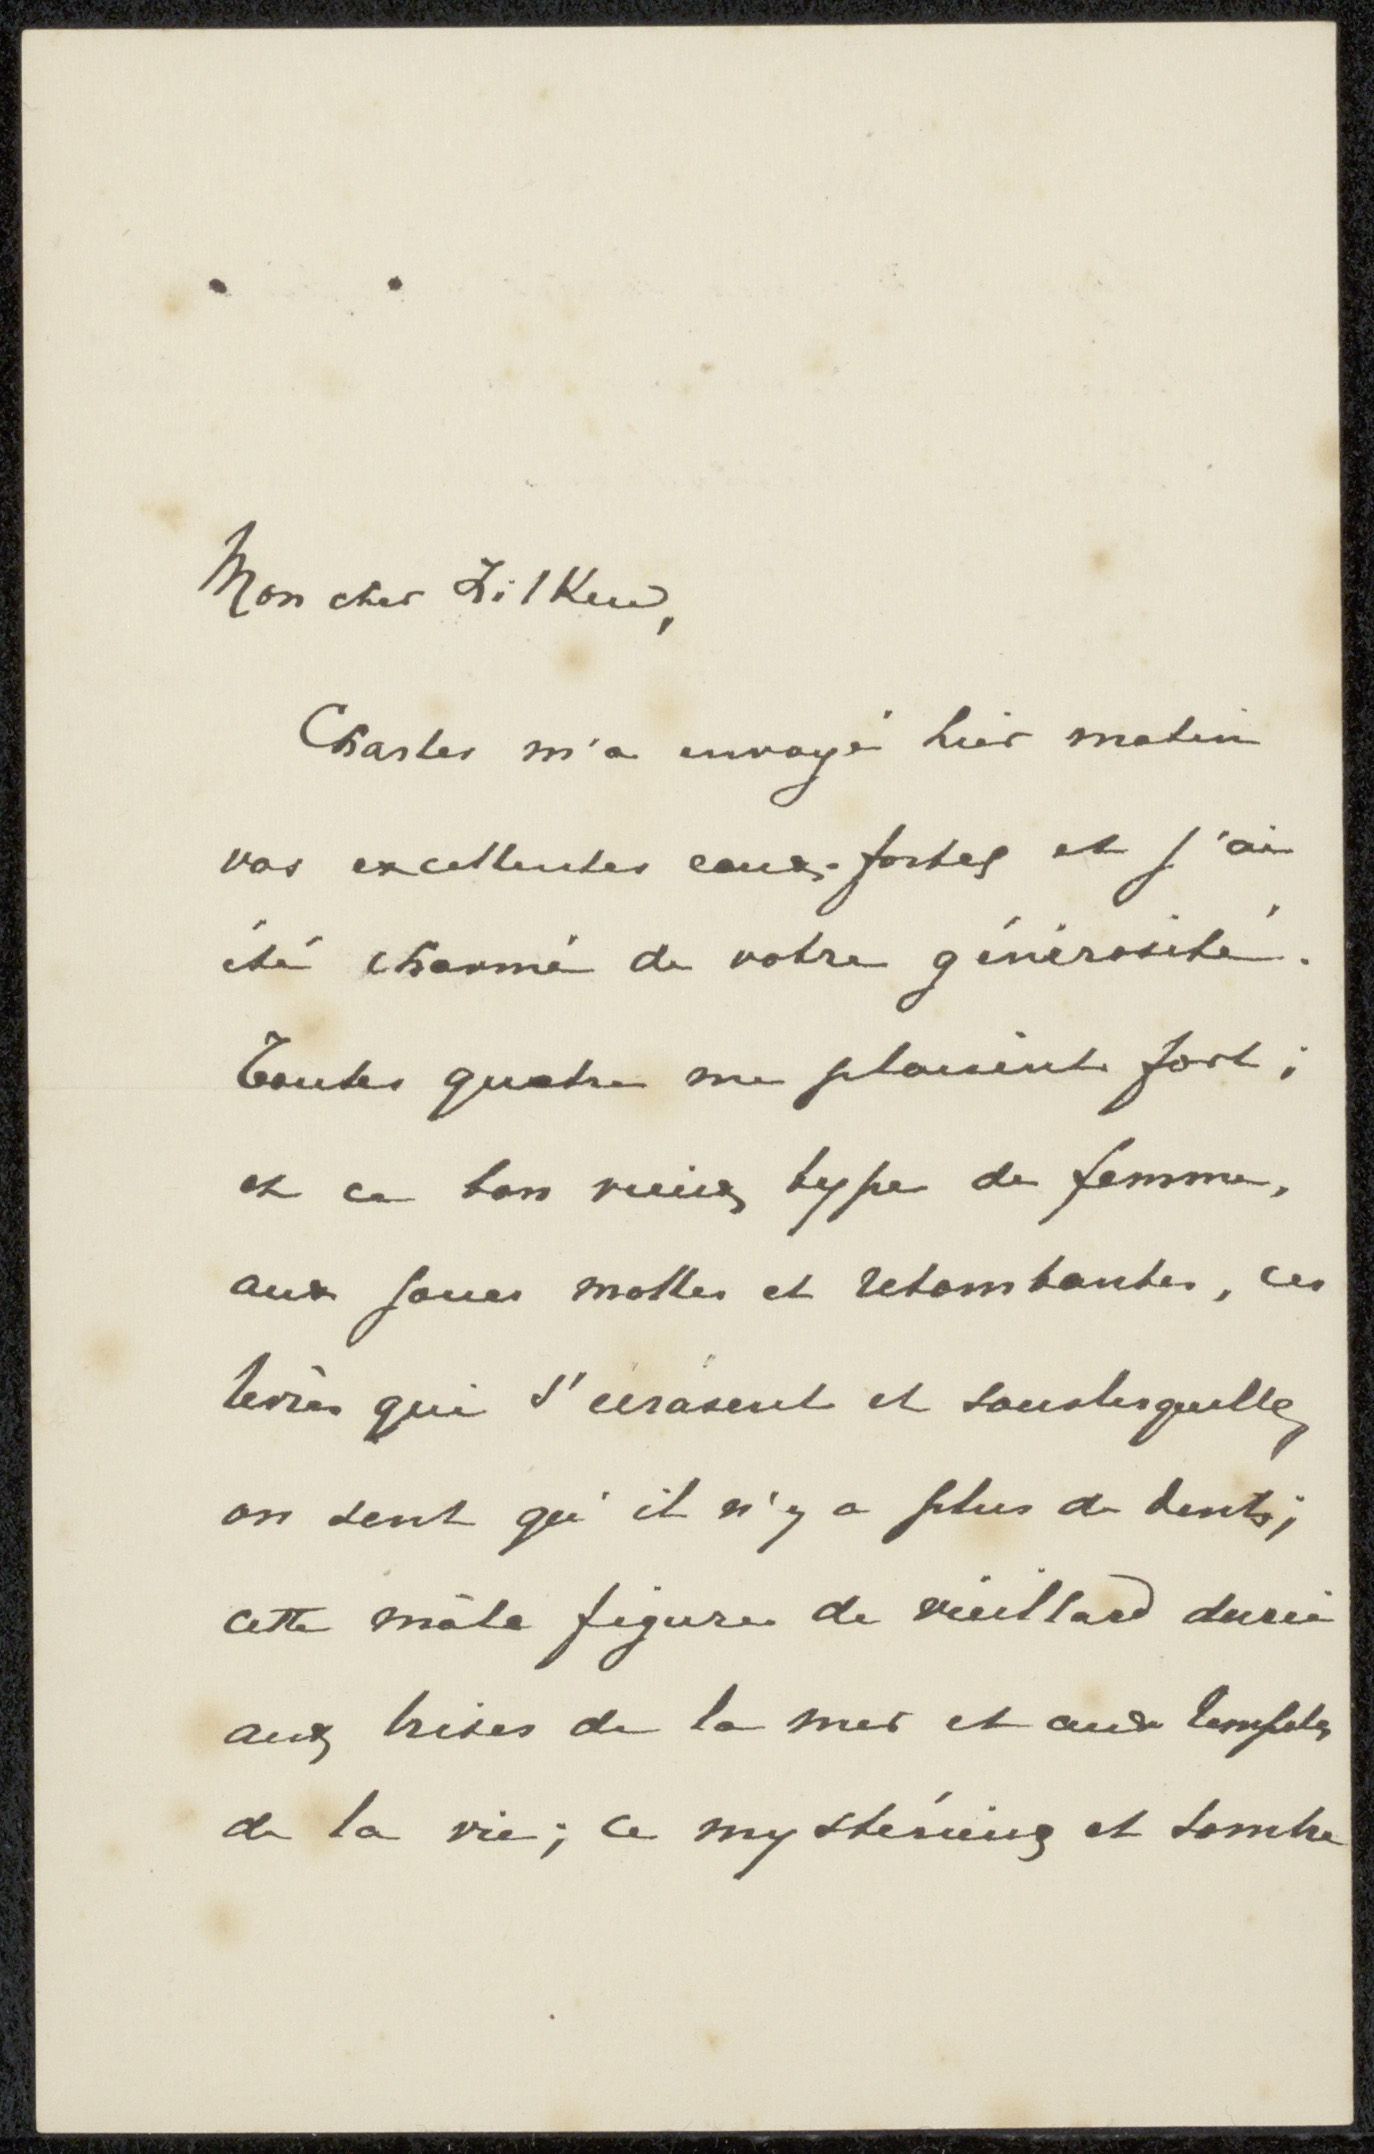 Mon cher Zilken,
Charles m'a envoyé hier matin
vos excellentes eaux-fortes et j'ai
été charmé de votre générosité.
Toutes quatre me plaisent fort ;
et ce bon vieux type de femme,
aux joues molles et retombantes, ces
levrès qui s'écrasent et souslesquelles
on sent qu'il n'y a plus de dents ;
cette mâle figure de vieillard durcie
aux brises de la mer et aux tempêtes
de la vie ; ce mystérieux et sombre